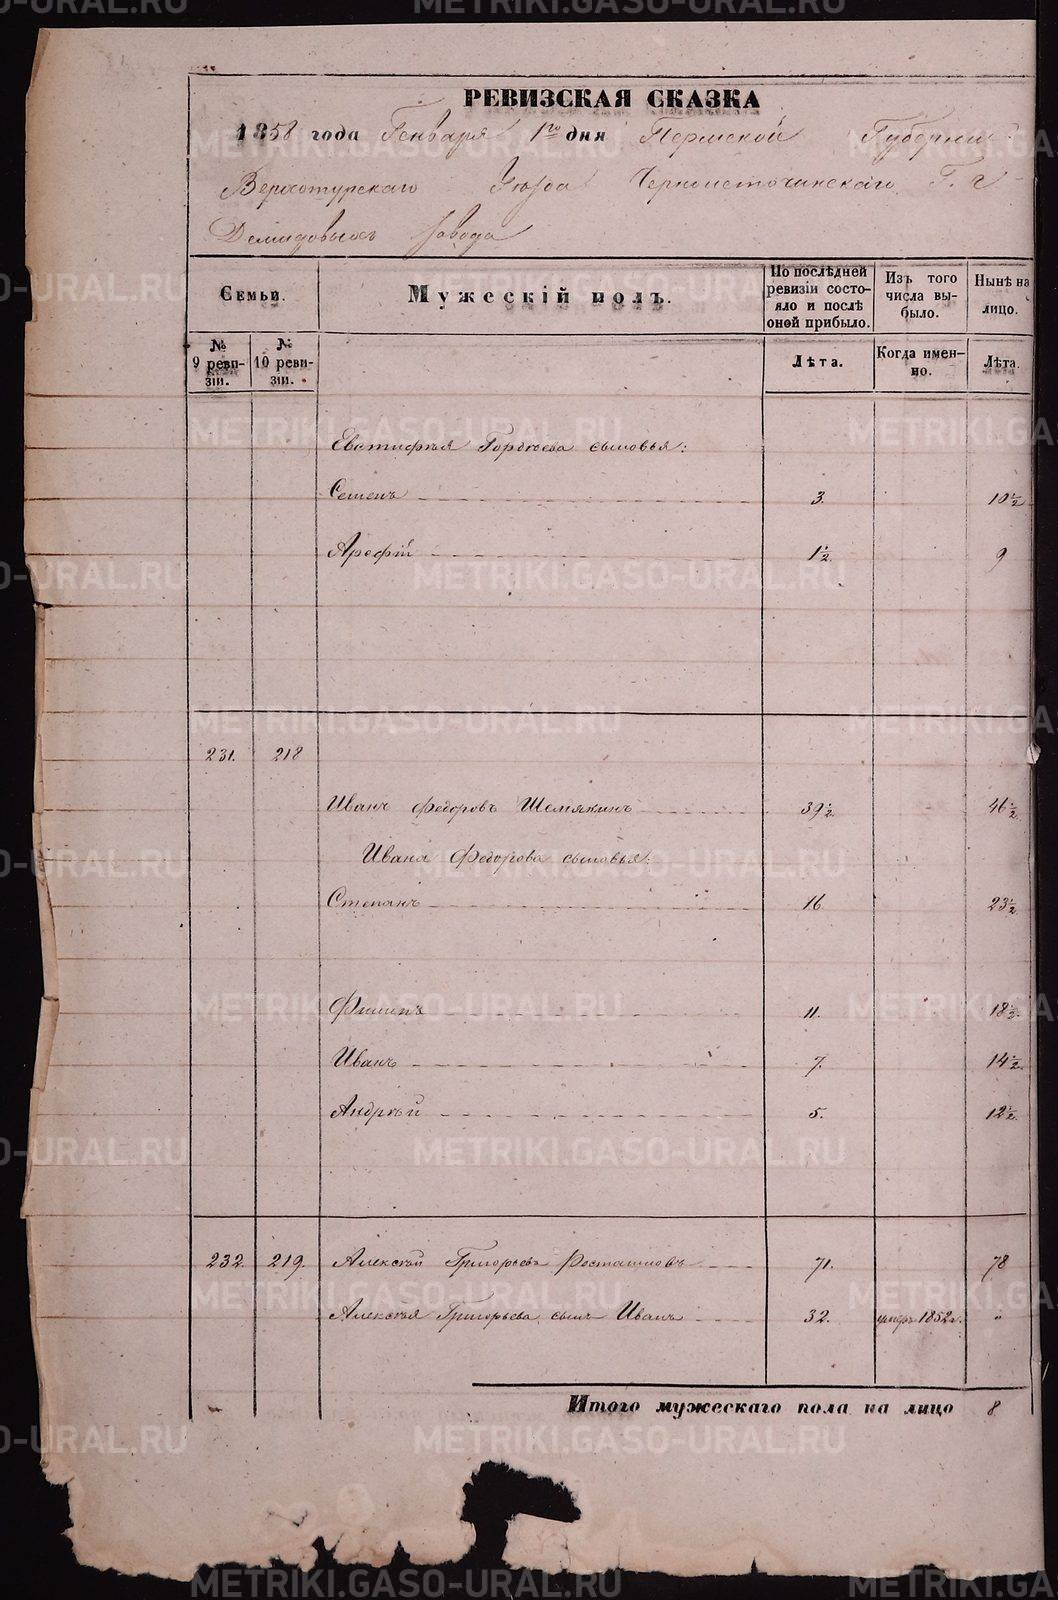 РЕВИЗСКАЯ СКАЗКА
1858 года Генваря 1го дня Пермской Губернии
Верхотурскаго Уѣзда Черноисточинскаго Г. г
Демидовыхъ завода
Семьи.
Мужескій полъ.
По послѣдней ревизіи состояло и послѣ оной прибыло.
Изъ того числа выбыло.
Нынѣ на лицо.
№ 9 ревизіи.
№ 10 ревизіи.
Лѣта.
Когда именно.
Лѣта.
Евстифѣя Гордѣева сыновья:
Семенъ 3. 10½
Арефій 1½ 9
231. 218
Иванъ Федоровъ Шемякинъ 39½ 46½
Ивана Федорова сыновья:
Степанъ 16 23½
Филипъ 11. 18½
Иванъ 7. 14½
Андрѣй 5. 12½
232. 219. Алексѣй Григорьевъ 71. 78
Алексѣя Григорьева сынъ Иванъ 32. 1852г. „
Итого мужескаго пола на лицо 8
METRIKI.GASO-URAL.RU